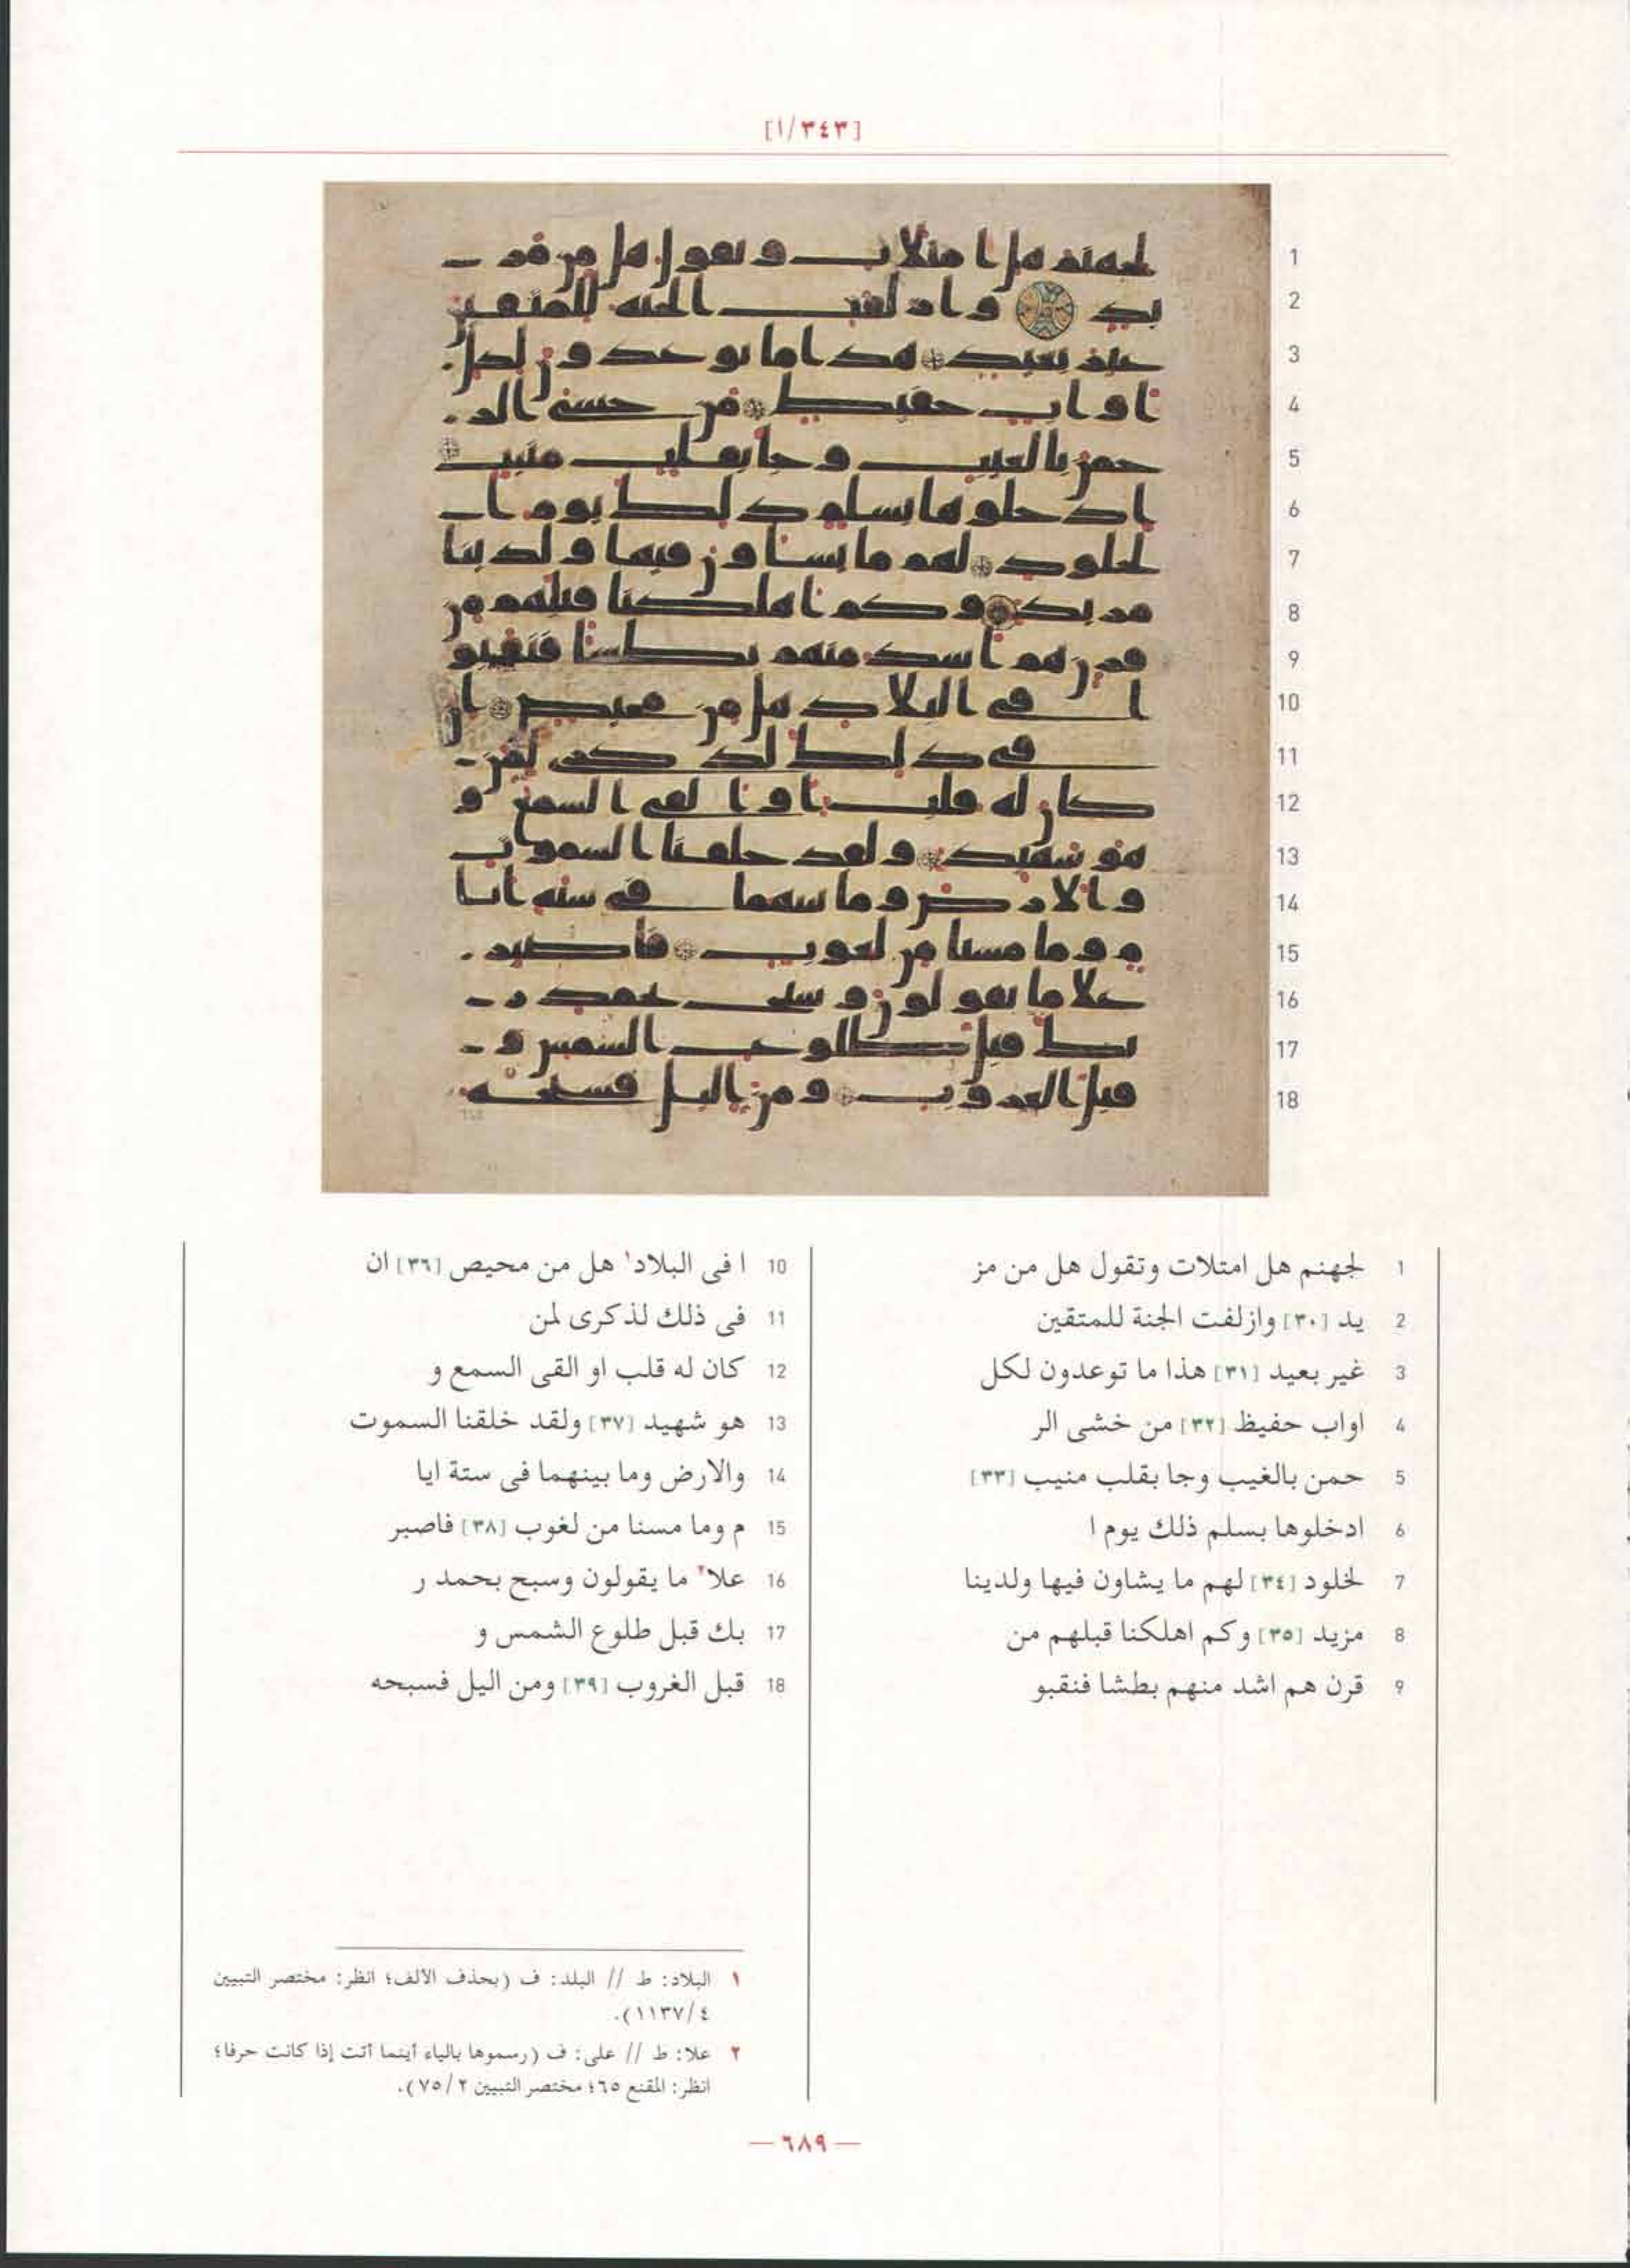 [٣٤٣/١]
1 لجهنم هل امتلات وتقول هل من مز
2 يد [٣٠] وازلفت الجنة للمتقين
3 غير بعيد [٣١] هذا ما توعدون لكل
4 اواب حفيظ [٣٢] من خشى الر
5 حمن بالغيب وجا بقلب منيب [٣٣]
6 ادخلوها بسلم ذلك يوم ا
7 لخلود [٣٤] لهم ما يشاون فيها ولدينا
8 مزيد [٣٥] وكم اهلكنا قبلهم من
9 قرن هم اشد منهم بطشا فنقبو
10 ا فى البلاد١ هل من محيص [٣٦] ان
11 فى ذلك لذكرى لمن
12 كان له قلب او القى السمع و
13 هو شهيد [٣٧] ولقد خلقنا السموت
14 والارض وما بينهما فى ستة ايا
15 م وما مسنا من لغوب [٣٨] فاصبر
16 علا٢ ما يقولون وسبح بحمد ر
17 بك قبل طلوع الشمس و
18 قبل الغروب [٣٩] ومن اليل فسبحه
١ البلاد: ط // البلد: ف (بحذف الألف؛ انظر: مختصر التبيين
٤/١١٣٧).
٢ علا: ط // على: ف (رسموها بالياء أينما أتت إذا كانت حرفا؛
انظر: المقنع ٦٥؛ مختصر التبيين ٢/٧٥).
— ٦٨٩ —